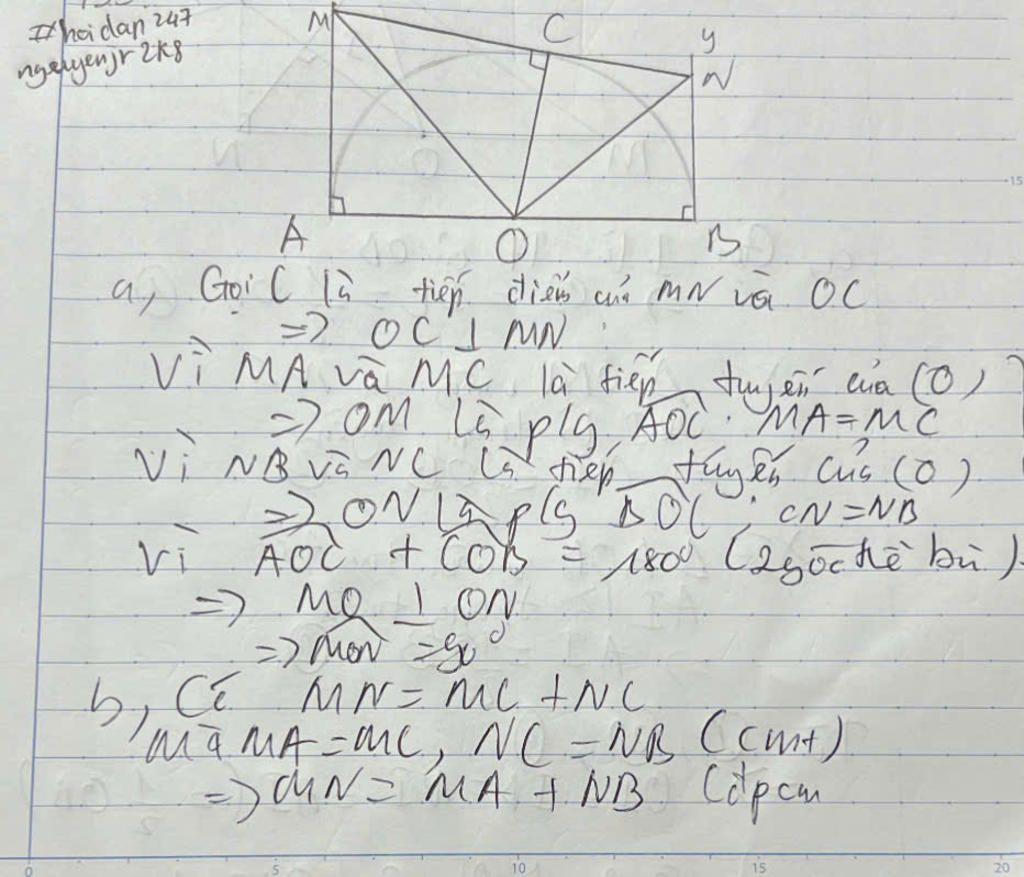 #hoidap247
nguyenjr 2k8
M
C
y
N
A
O
B
15
a, Gọi C là tiếp điểm của MN và OC
=> OC ⊥ MN
Vì MA và MC là tiếp tuyến của (O)
=> OM là p/g AOC . MA = MC
Vì NB và NC là tiếp tuyến của (O)
=> ON là p/g BOC ; CN = NB
Vì AOC + COB = 180° (2 góc kề bù)
=> MO ⊥ ON
=> MON = 90°
b, Có MN = MC + NC
mà MA = MC, NC = NB (cmt)
=> MN = MA + NB (đpcm
0 5 10 15 20